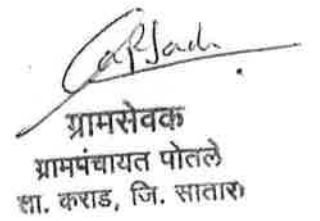 ग्रामसेवक
ग्रामपंचायत पोतले
ता. कराड, जि. सातारा